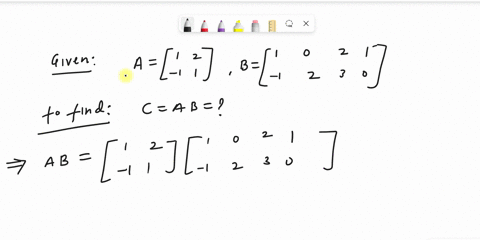 Given: A = [1 2 -1 1] , B = [1 0 2 1 -1 2 3 0]
to find: C = AB = ?
⇒ AB = [1 2 -1 1] [1 0 2 1 -1 2 3 0]